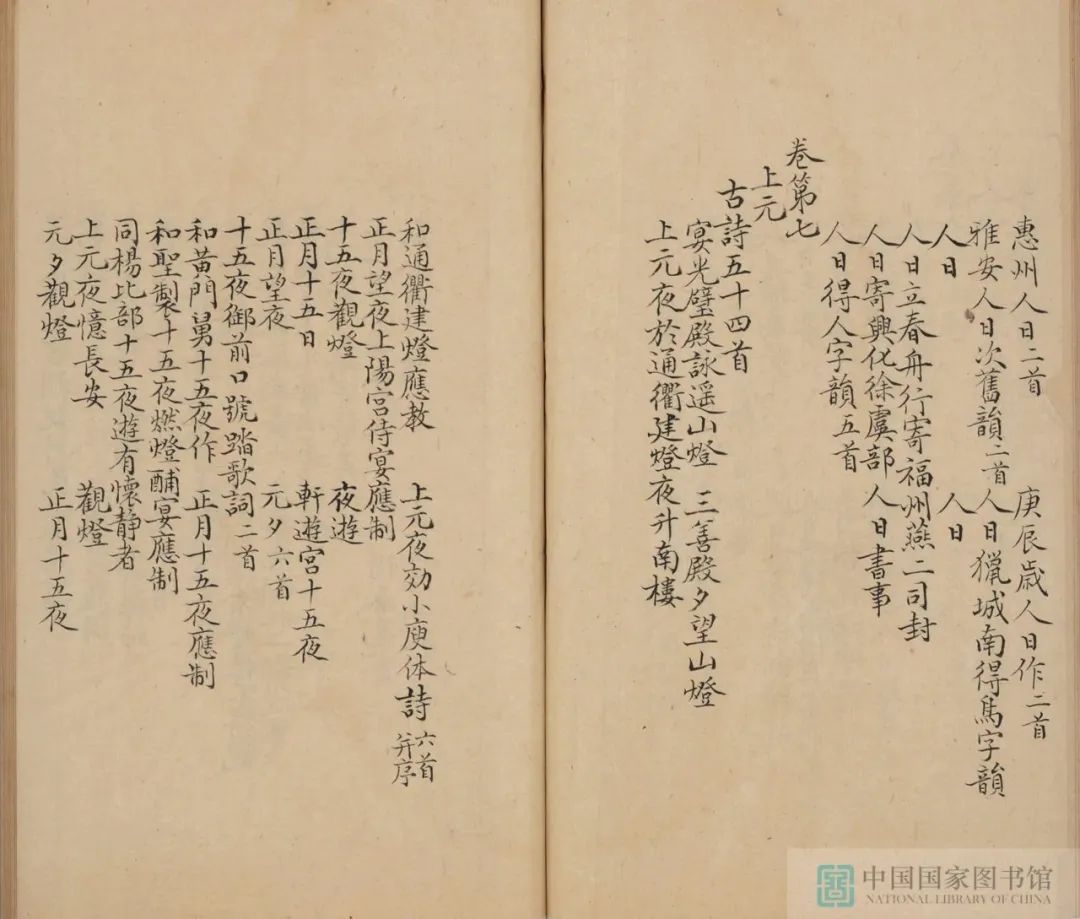 惠州人日二首 庚辰歳人日作二首
雅安人日次舊韻二首 人日獵城南得鳥字韻
人日 人日
人日立春舟行寄福州燕二司封
人日寄興化徐虞部 人日書事
人日得人字韻五首
卷第七
上元
古詩五十四首
宴光璧殿詠遥山燈 三善殿夕望山燈
上元夜於通衢建燈夜升南樓
和通衢建燈應教 上元夜効小庾体詩六首并序
正月望夜上陽宫侍宴應制
十五夜觀燈 夜遊
正月十五日 軒遊宫十五夜
正月望夜 元夕六首
十五夜御前口號踏歌詞二首
和黄門舅十五夜作 正月十五夜應制
和聖製十五夜燃燈酺宴應制
同楊比部十五夜遊有懷静者
上元夜憶長安 觀燈
元夕觀燈 正月十五夜
中国国家图书馆
NATIONAL LIBRARY OF CHINA